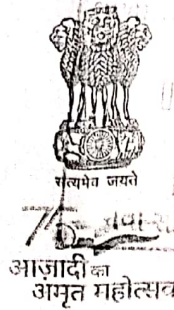 सत्यमेव जयते
75
आज़ादी का
अमृत महोत्सव